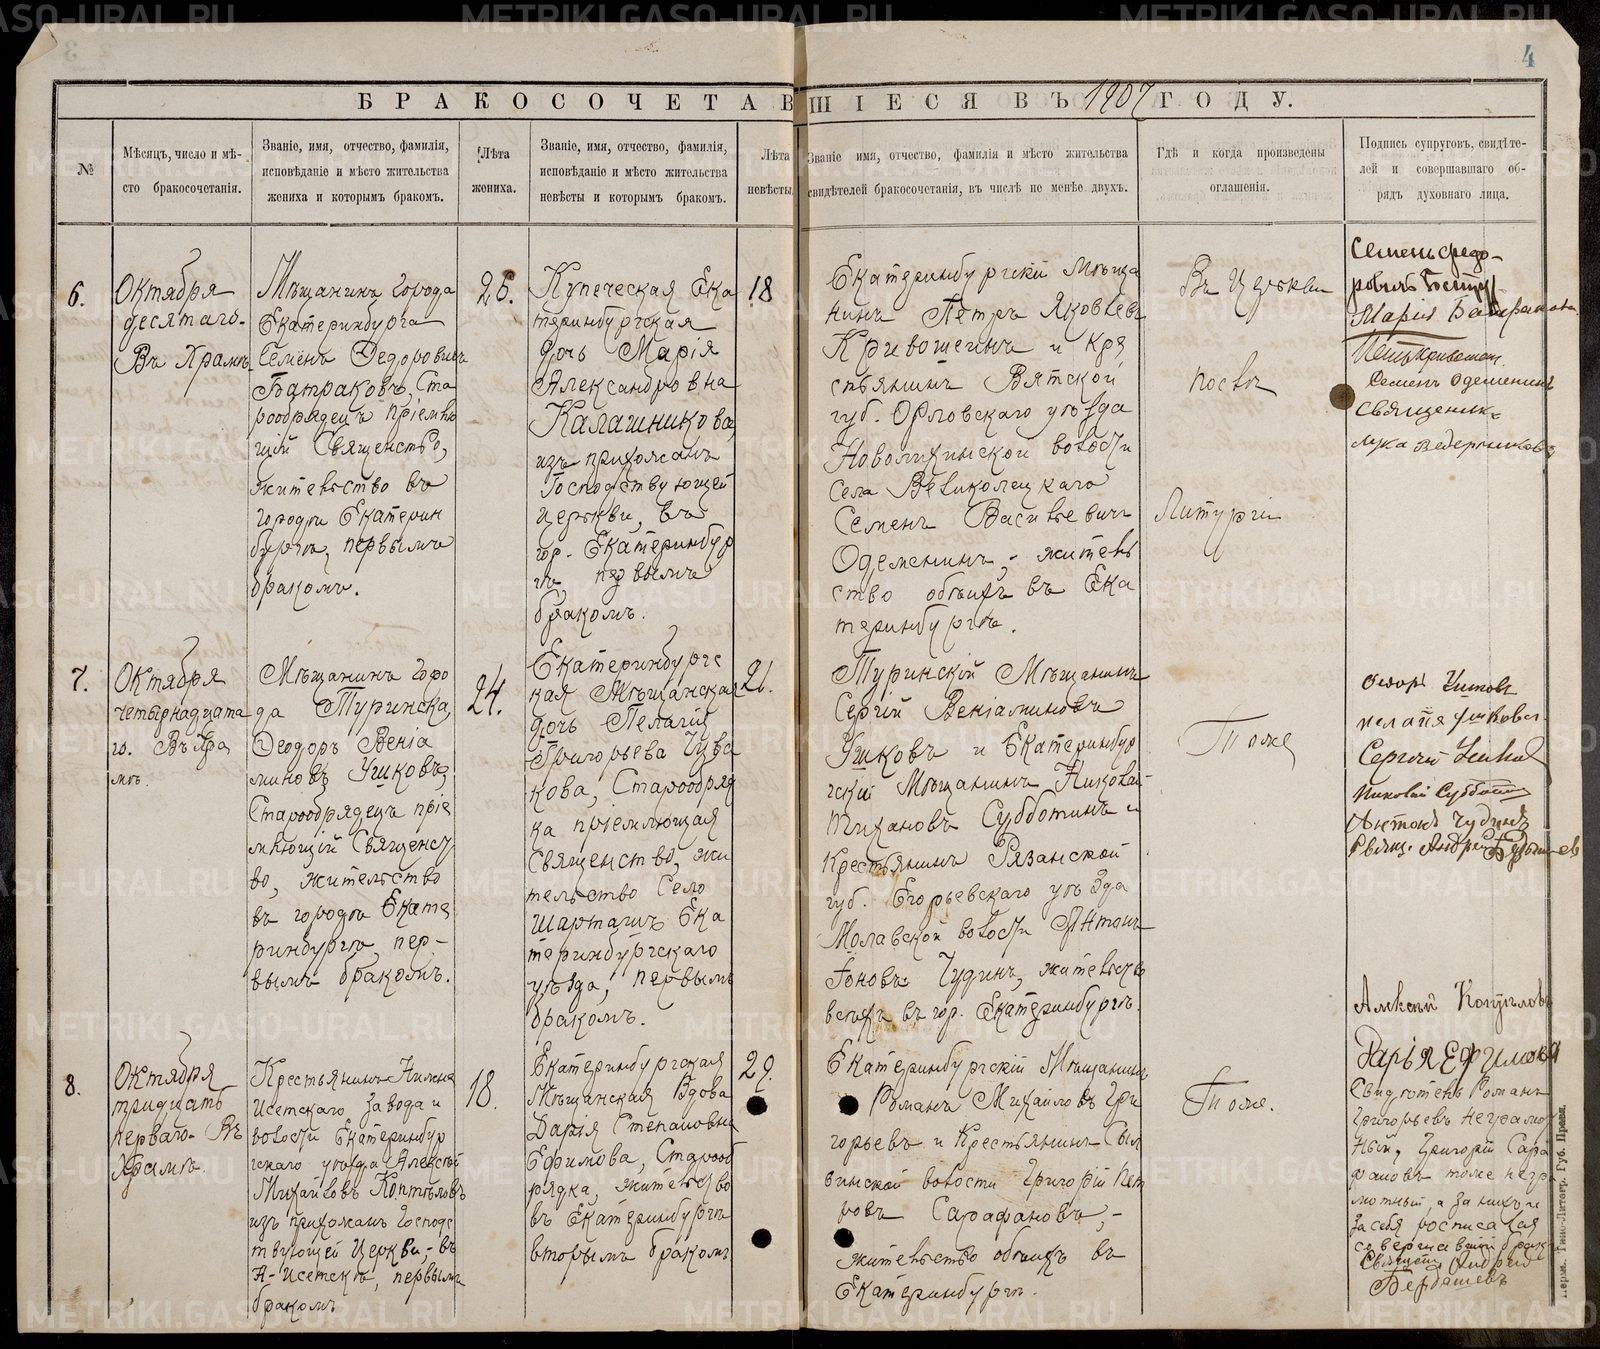 4
БРАКОСОЧЕТАВШІЕСЯ ВЪ 1907 ГОДУ.
№
Мѣсяцъ, число и мѣ-
сто бракосочетанія.
Званіе, имя, отчество, фамилія,
исповѣданіе и мѣсто жительства
жениха и которымъ бракомъ.
Лѣта
жениха.
Званіе, имя, отчество, фамилія,
исповѣданіе и мѣсто жительства
невѣсты и которымъ бракомъ.
Лѣта
невѣсты.
Званіе имя, отчество, фамилія и мѣсто жительства
свидѣтелей бракосочетанія, въ числѣ не менѣе двухъ.
Гдѣ и когда произведены
оглашенія.
Подпись супруговъ, свидѣте-
лей и совершавшаго об-
рядъ духовнаго лица.
6.
Октября
десятаго.
Въ Храмѣ
Мѣщанинъ города
Екатеринбурга
Семенъ Федоровичъ
Батраковъ, Ста
рообрядецъ пріемлю
щій Священство,
жительство въ
городѣ Екатерин
бургѣ, первымъ
бракомъ.
26.
Купеческая Ека
теринбургская
дочь Марія
Александровна
Калашникова,
изъ прихожанъ
Господствующей
церкви, въ
гор. Екатеринбур
гѣ, первымъ
бракомъ.
18
Екатеринбургскій Мѣща
нинъ Петръ Яковлевъ
Кривошеинъ и Кре
стьянинъ Вятской
губ. Орловскаго уѣзда
волости
села Великорецкаго
Семенъ Васильевичъ
Одеменинъ, житель
ство обоихъ въ Ека
теринбургѣ.
Въ Церкви
послѣ
Литургіи
Семенъ Федо-
ровичъ
Марія
Семенъ Одеменинъ
священник
Лука Ведерников
7.
Октября
четырнадцата
го. Въ Хра
мѣ.
Мѣщанинъ горо
да Туринска,
Федоръ Веніа
миновъ Ушковъ,
Старообрядецъ пріе
млющій Священст
во, жительство
въ городѣ Екате
ринбургѣ, пер-
вымъ бракомъ.
24.
Екатеринбургс
кая Мѣщанская
дочь Пелагія
Григорьева Чува
кова, Старообряд
ка пріемлющая
Священство, жи
тельство Село
Шарташъ Ека
теринбургскаго
уѣзда, первымъ
бракомъ.
21.
Туринскій Мѣщанинъ
Сергій Веніаминовъ
Ушковъ и Екатеринбур
гскій Мѣщанинъ Николай
Тихановъ Субботинъ и
Крестьянинъ Рязанской
губ. Егорьевскаго уѣзда
волости Антонъ
Чудинъ, жительство
всѣхъ въ гор. Екатеринбургѣ.
Тоже
Федоръ Ушковъ
пелагѣя Ушкова
Сергѣй Ушков
Николай Субботинъ
Антонъ Чудинъ
Свящ. Андрей Бердышев
8.
Октября
тридцать
перваго. Въ
Храмѣ.
Крестьянинъ Нижне
Исетскаго завода и
волости Екатеринбур
гскаго уѣзда Алексѣй
Михайловъ Коптѣловъ
изъ прихожанъ Господс
твующей Церкви, въ
Н-Исетскѣ, первымъ
бракомъ
18.
Екатеринбургская
Мѣщанская Вдова
Дарія Степановна
Ефимова, Старооб
рядка, жительство
въ Екатеринбургѣ
вторымъ бракомъ
29.
Екатеринбургскій Мѣщанинъ
Романъ Михайловъ Гри
горьевъ и Крестьянинъ Сыл
винской волости Григорій Пет
ровъ Сарафановъ,-
жительство обоихъ въ
Екатеринбургѣ.
Тоже.
Алексѣй Коптѣловъ
Дарья Ефимова
Свидѣтель Романъ
Григорьевъ неграмот
ный, Григорій Сара
фановъ тоже негра
мотный, а за нихъ и
за себя росписался
совершавшій бракъ
Священ. Андрей
Бердышевъ
Перм. Типо-Литогр. Губ. Правл.
METRIKI.GASO-URAL.RU